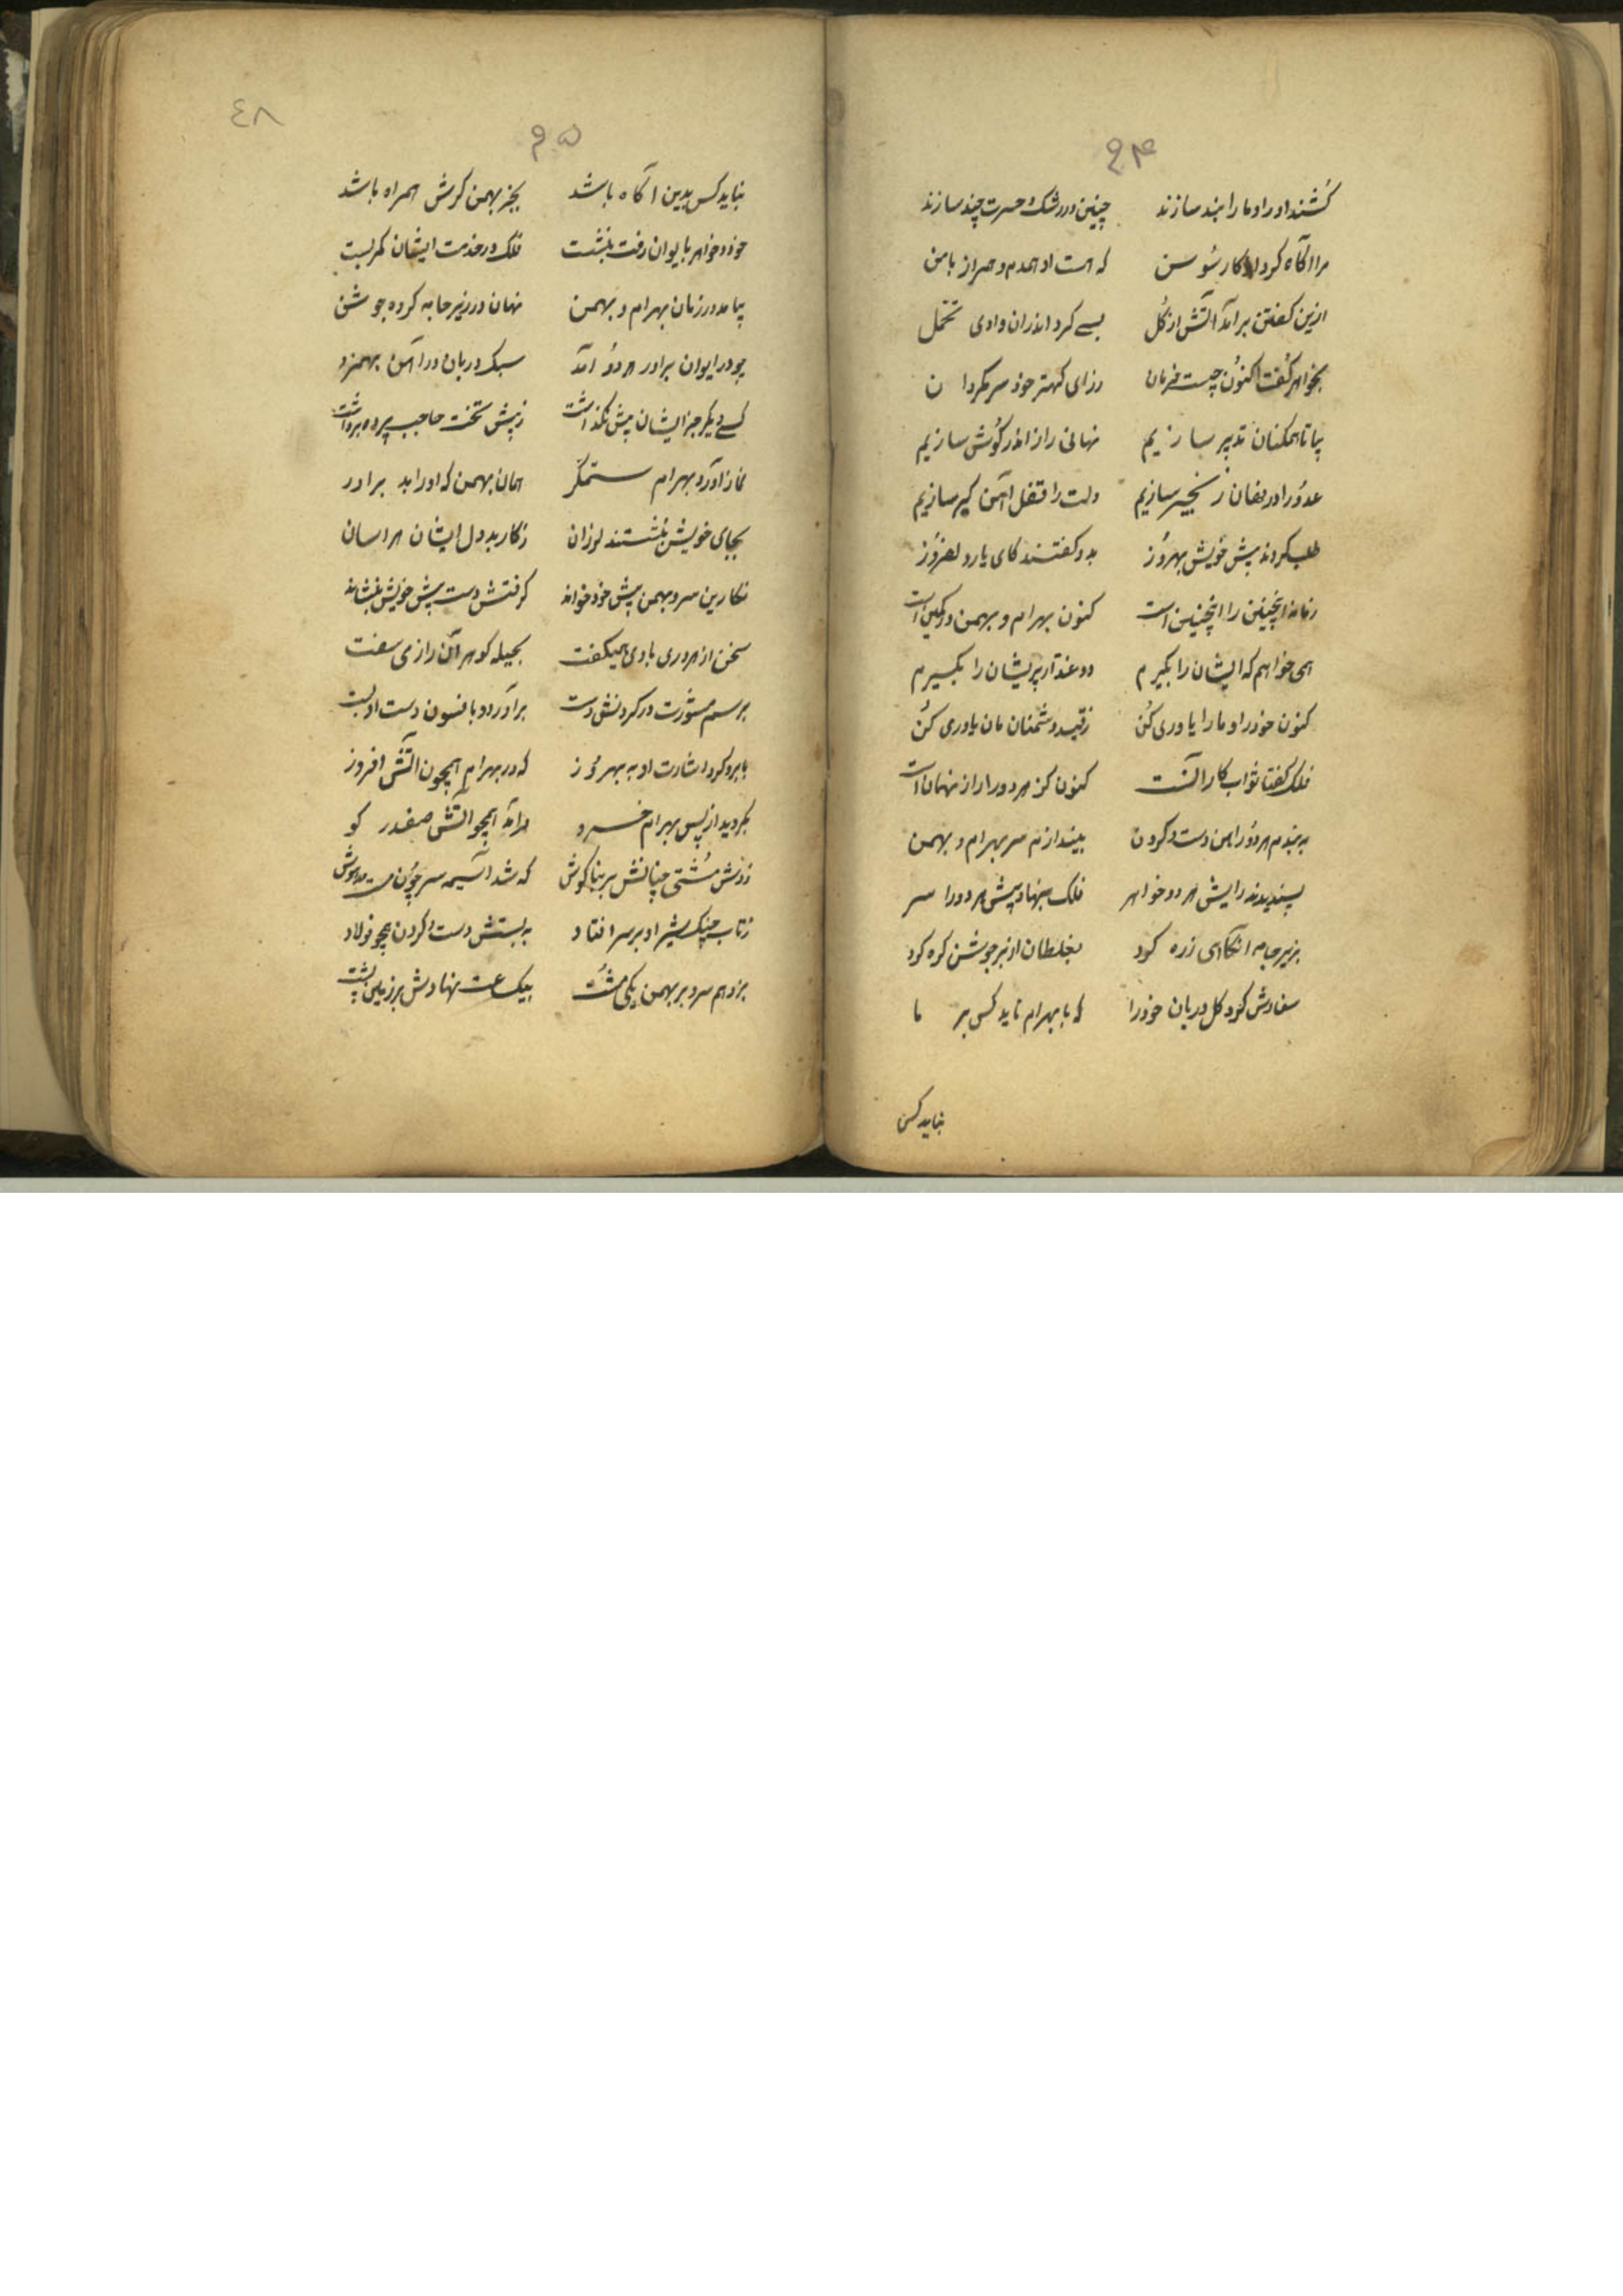 ۹۴
کُشند او را و ما را بند سازند چنین در رشک و حسرت چند سازند
مرا آگاه کرد از کار سُوسن که هست او همدم و همراز با من
ازین کفتن برآمد آتش از کُل بسے کرد اندران وادی تحمل
بخواهر کُفت اکنُون چیست فرمان ز رای کهتر خود سر مکردان
بیا تا همکنان تدبیر سازیم نهانی راز اندر کُوش سازیم
عدُو را در نهان زنجیر سازیم دلت را قفل آهن کیر سازیم
طلب کردند پیش خویش بهرُوز بدو کفتند کای یار دلفرُوز
زمانه اینچنین را اینچنین است کنون بهرام و بهمن در کمین است
همی خواهم که ایشان را بکیرم دو غدار پریشان را بکیرم
کنون خود را و ما را یاوری کُن ز قید دشمنان مان یاوری کُن
فلک کفتا ثواب کار آنست کنون کز هر دو را راز نهان است
به بندم هر دُو را من دست و کردن بیندازم سر بهرام و بهمن
پسندیدند رایش هر دو خواهر فلک بنهاد پیش هر دو را سر
بزیر جامه آنکاهی زره کرد بغلطان از بر جوشن کره کرد
سفارش کرد کل دربان خود را که با بهرام ناید کس بر ما
نباید کس
٤٨
۹۵
نباید کس بدین آکاه باشد بجز بهمن کرش همراه باشد
خود و خواهر بایوان رفت بنشست فلک در خدمت ایشان کمر بست
بیامد در زمان بهرام و بهمن نهان در زیر جامه کرده جوشن
چو در ایوان برادر هر دُو آمد سبک دربان در آهن بهم زد
کسے دیکر جز ایشان پیش نکذاشت ز پیش تخت حاجب پرده برداشت
نماز آورد بهرام ستمکر همان بهمن که او را بد برادر
بجای خویش بنشستند لرزان ز کار بد دل ایشان هراسان
نکارین سرو بهمن پیش خود خواند کرفتش دست پیش خویش بنشاند
سخن از هر دری با وی همیکفت بحیله کوهر آن راز می سفت
برسم مشورت در کردنش دست برآورد و بافسون دست او بست
بابرو کرد اشارت او به بهرُوز که در بهرام همچون آتش افروز
بکردید از پس بهرام خسرو درآمد همچو آتش صفدر کو
زدش مُشتی چنانش بر بناکوش که شد آسیمه سر چُون مست مدهوش
ز تاب چنک شیر او بر سر افتاد به بستش دست و کردن همچو فولاد
بزد هم سرو بر بهمن یکی مُشت بیک ساعت نهادش بر زمین پشت